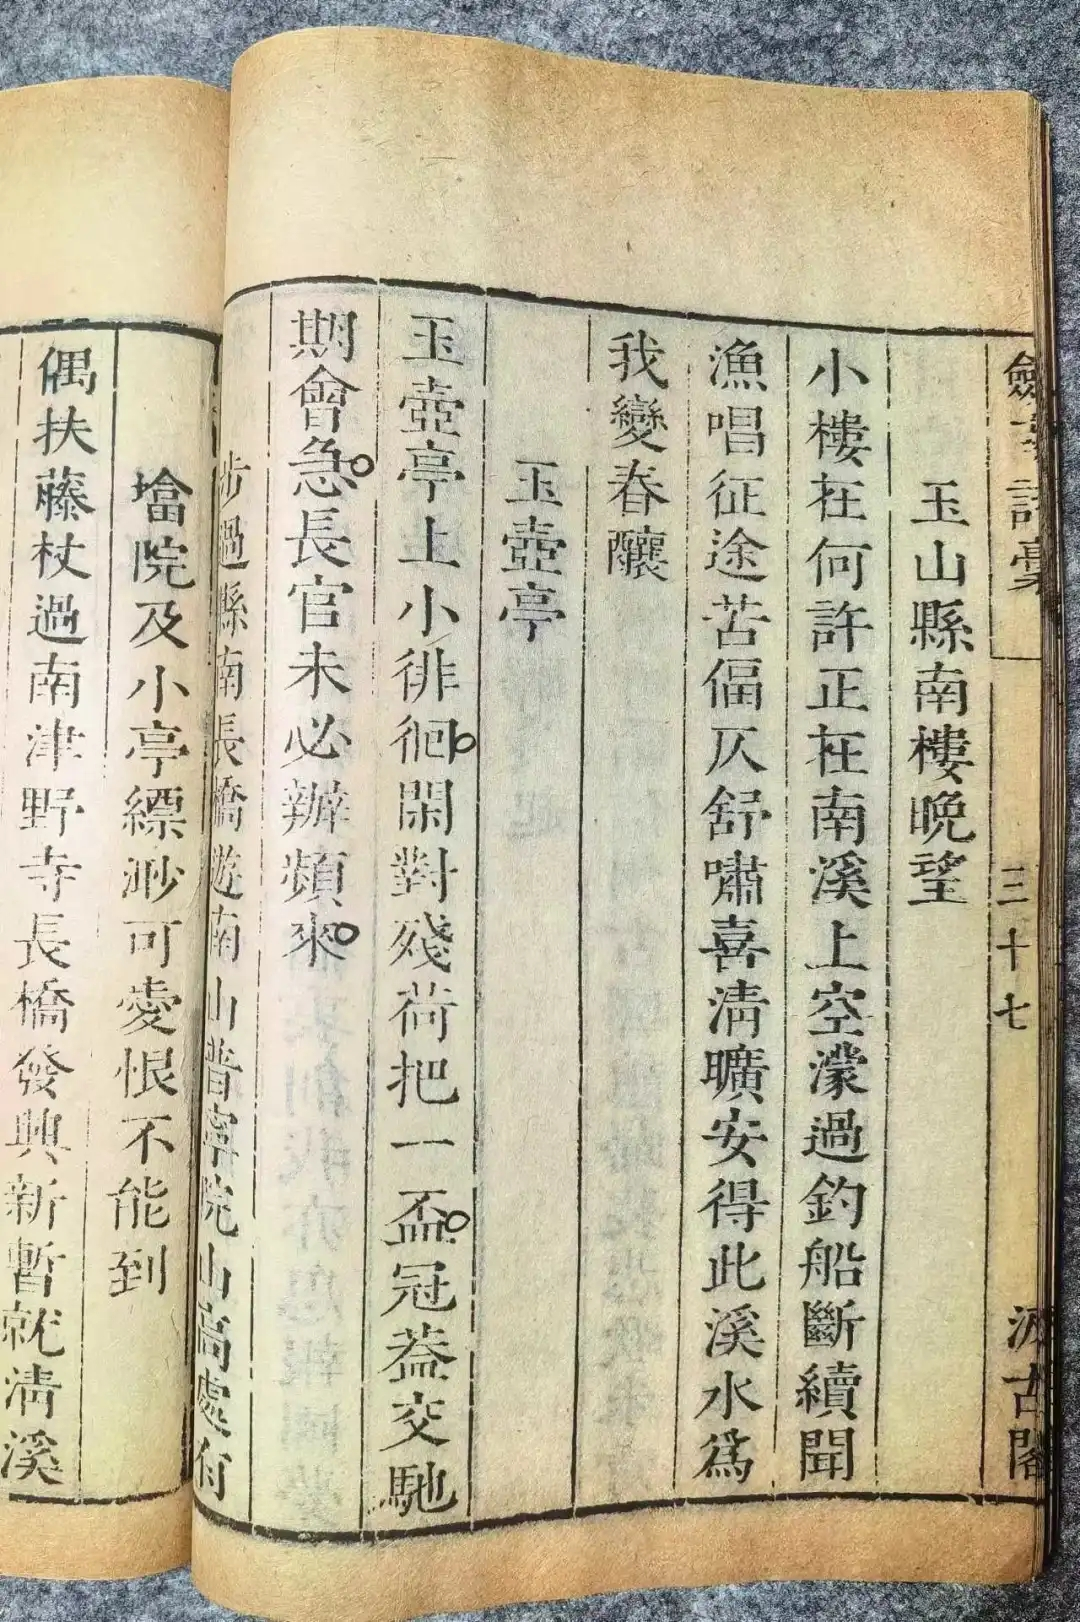 劍南詩稾
三十七
汲古閣
玉山縣南樓晚望
小樓在何許正在南溪上空濛過釣船斷續聞
漁唱征途苦偪仄舒嘯喜淸曠安得此溪水爲
我變春釀
玉壺亭
玉壺亭上小徘徊閑對殘荷把一盃冠葢交馳
期會急長官未必辦頻來
步過縣南長橋遊南山普寧院山高處有
墖院及小亭縹渺可愛恨不能到
偶扶藤杖過南津野寺長橋發興新暫就淸溪